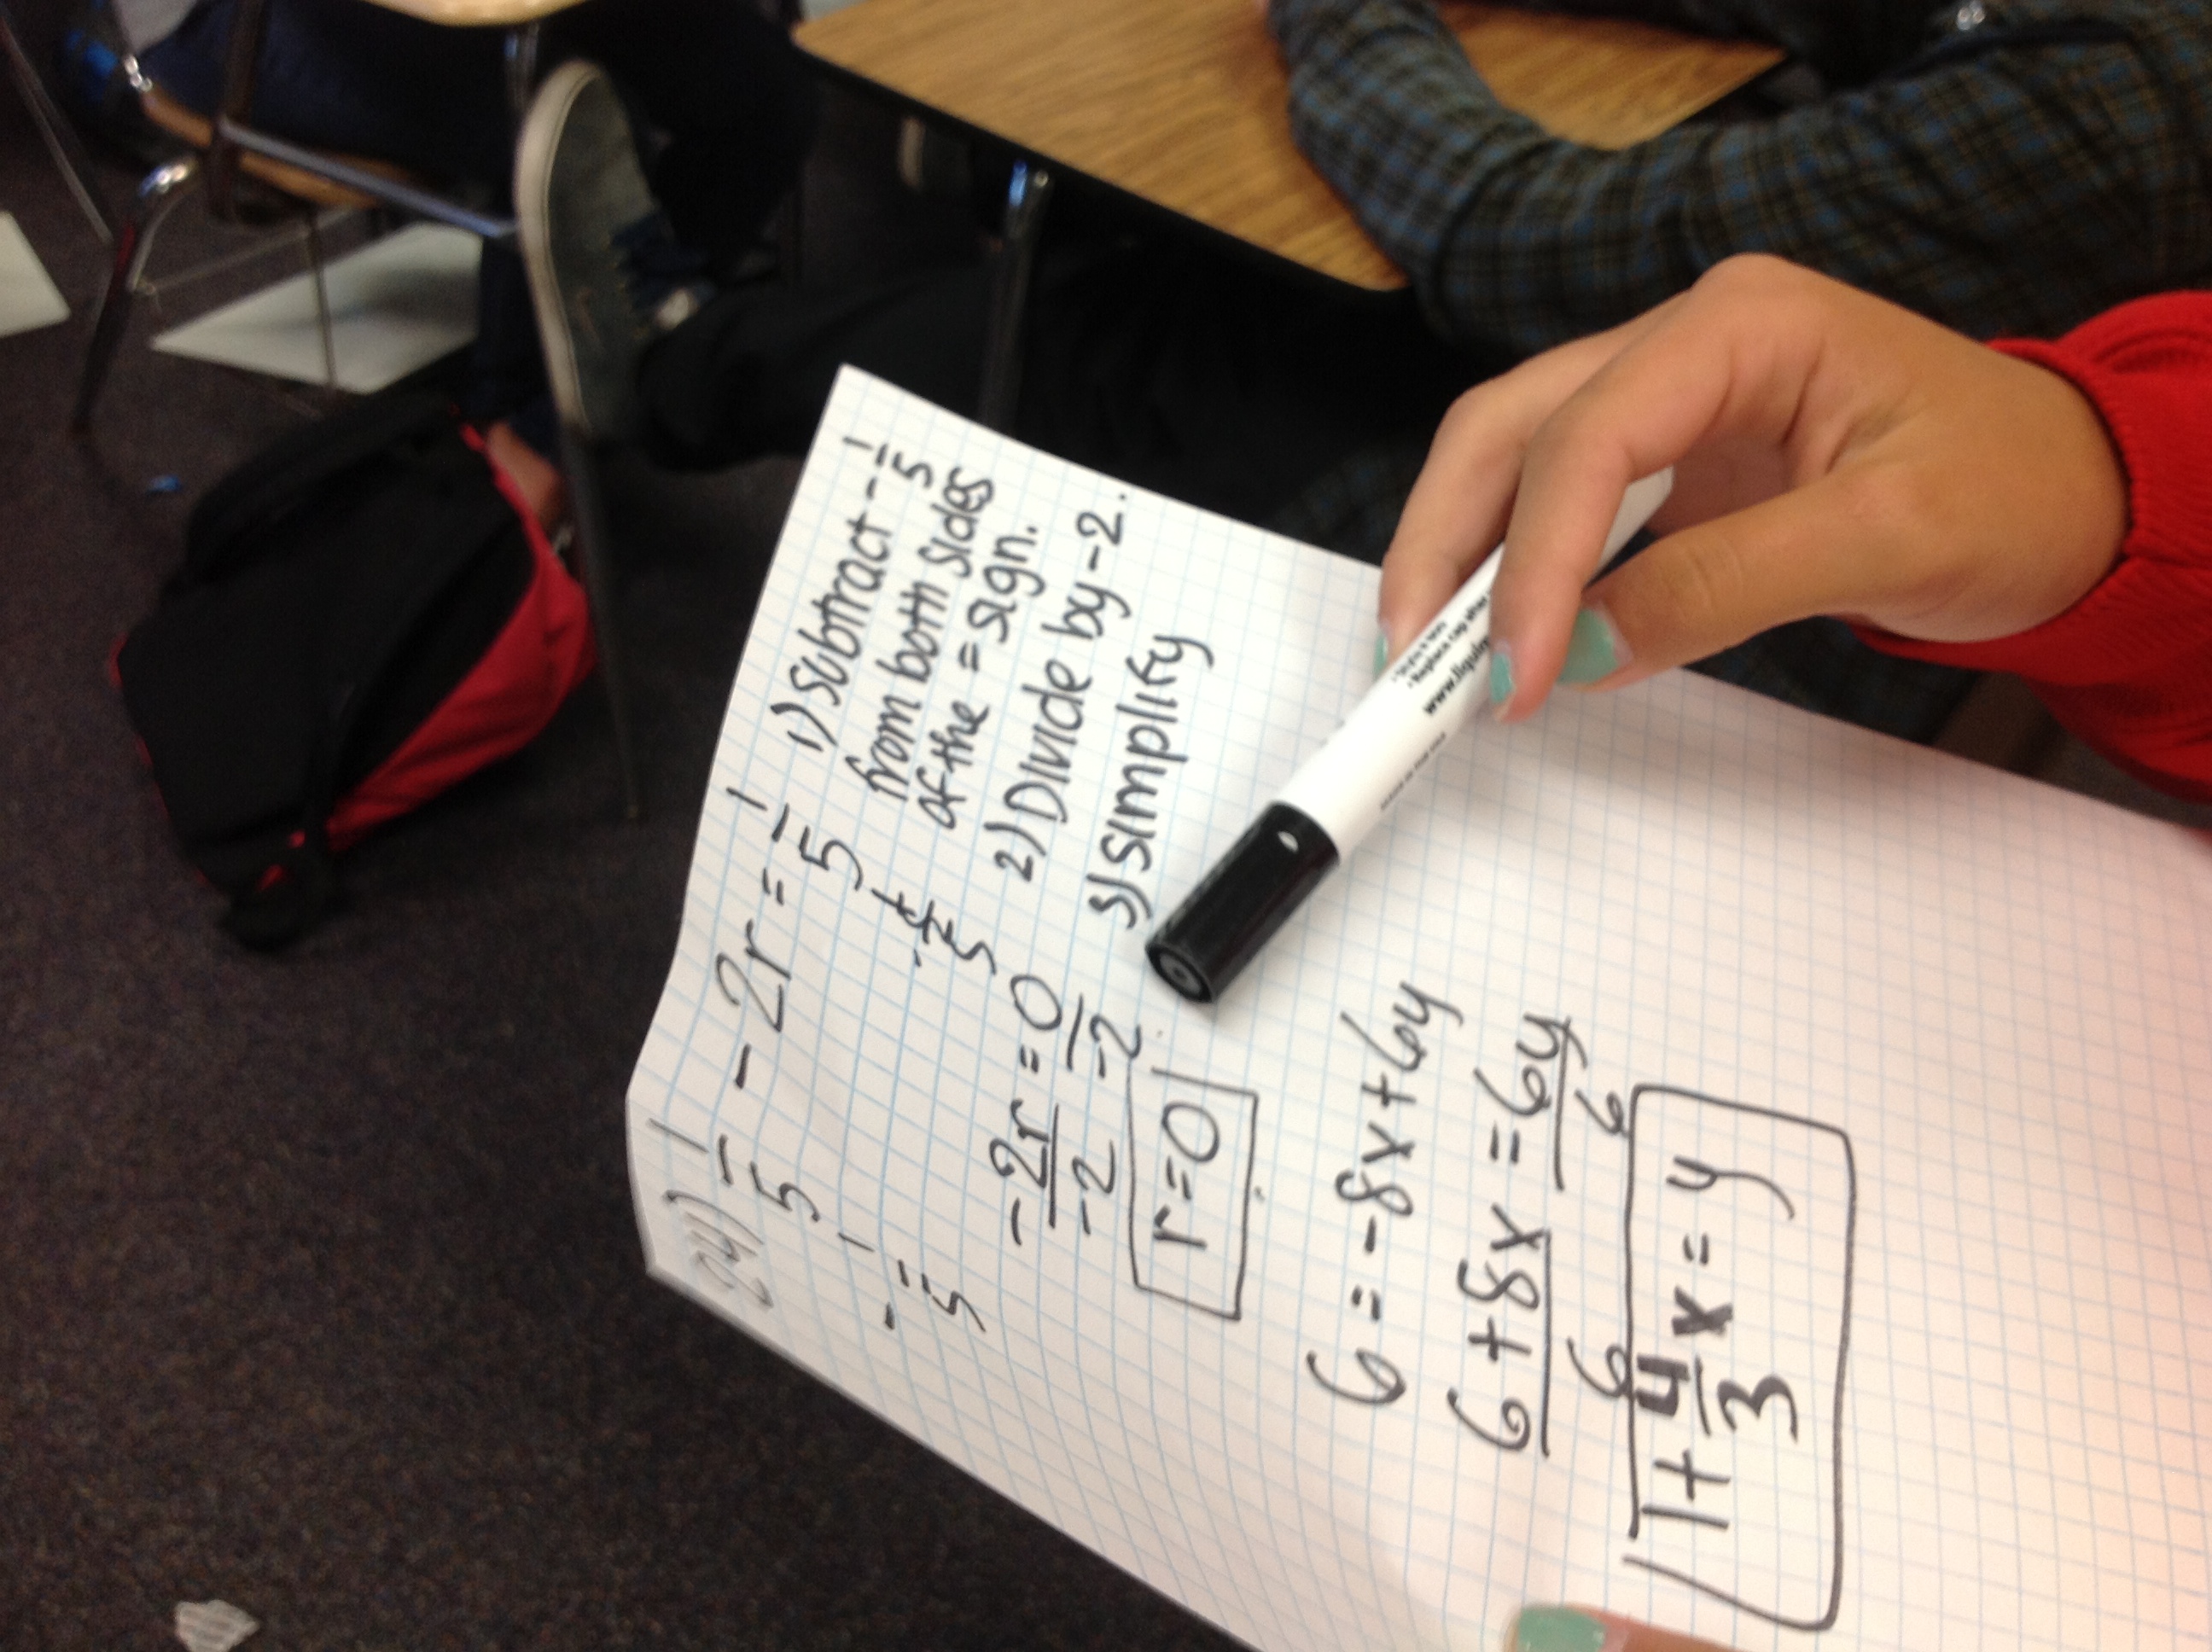 24) 1/5 - 2r = 1/5
-1/5 -1/5
1) Subtract - 1/5
from both sides
of the = sign.
-2r/-2 = 0/-2
2) Divide by -2.
3) Simplify
r=0
6 = -8x + 6y
6 + 8x = 6y
6 6
1 + 4/3 x = y